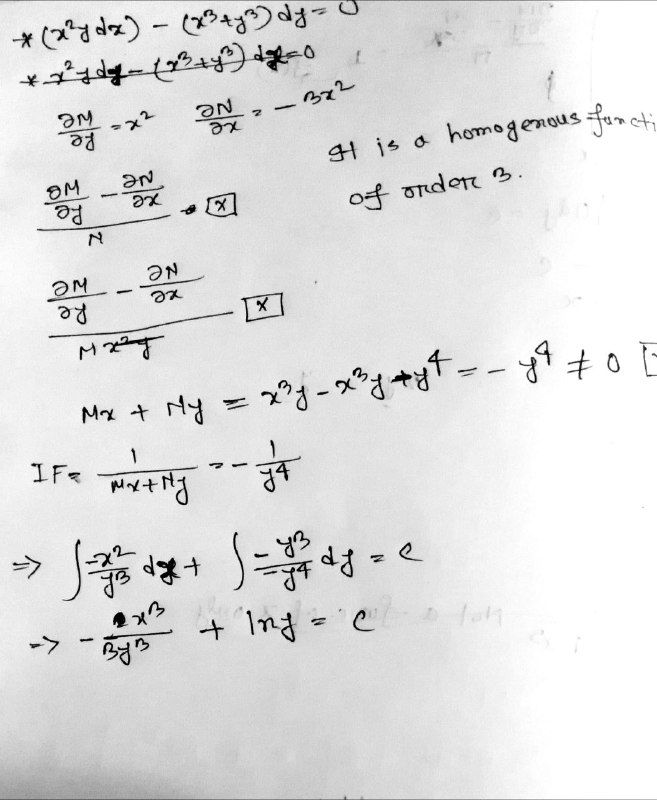 * (x²y dx) − (x³+y³) dy = 0
* x²y dy − (x³+y³) dx = 0
∂M/∂y = x²   ∂N/∂x = − 3x²
It is a homogenous functi
of order 3.
(∂M/∂y − ∂N/∂x)/N = [x]
(∂M/∂y − ∂N/∂x)/(M x²y) [x]
Mx + Ny = x³y − x³y − y⁴ = − y⁴ ≠ 0
IF = 1/(Mx+Ny) = − 1/y⁴
⇒ ∫ −x²/y³ dx + ∫ −y³/−y⁴ dy = c
⇒ − x³/3y³ + lny = c